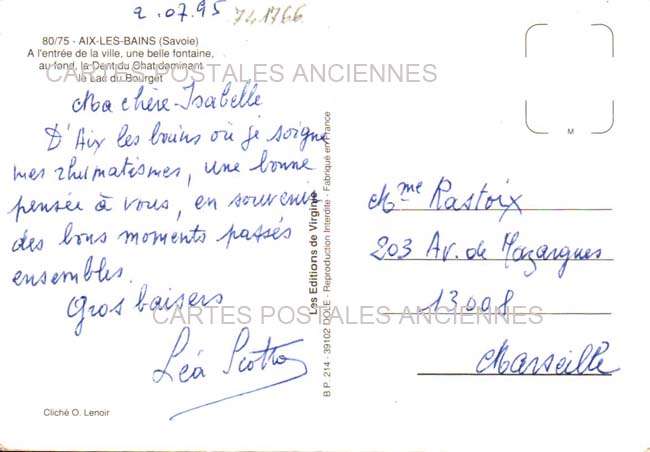 2.07.95 741766
80/75 - AIX-LES-BAINS (Savoie)
A l'entrée de la ville, une belle fontaine,
au fond, la Dent du Chat dominant
le Lac du Bourget
CARTES POSTALES ANCIENNES
Ma chère Isabelle
D'Aix les bains où je soigne
mes rhumatismes, une bonne
pensée à vous, en souvenir
des bons moments passés
ensembles.
Gros baisers
Léa Scotto
Cliché O. Lenoir
Les Editions de Virginie
B.P. 214 - 39102 DOLE - Reproduction Interdite - Fabriqué en France
M
Mme Rastoix
203 Av. de Mazargues
13008
Marseille
CARTES POSTALES ANCIENNES